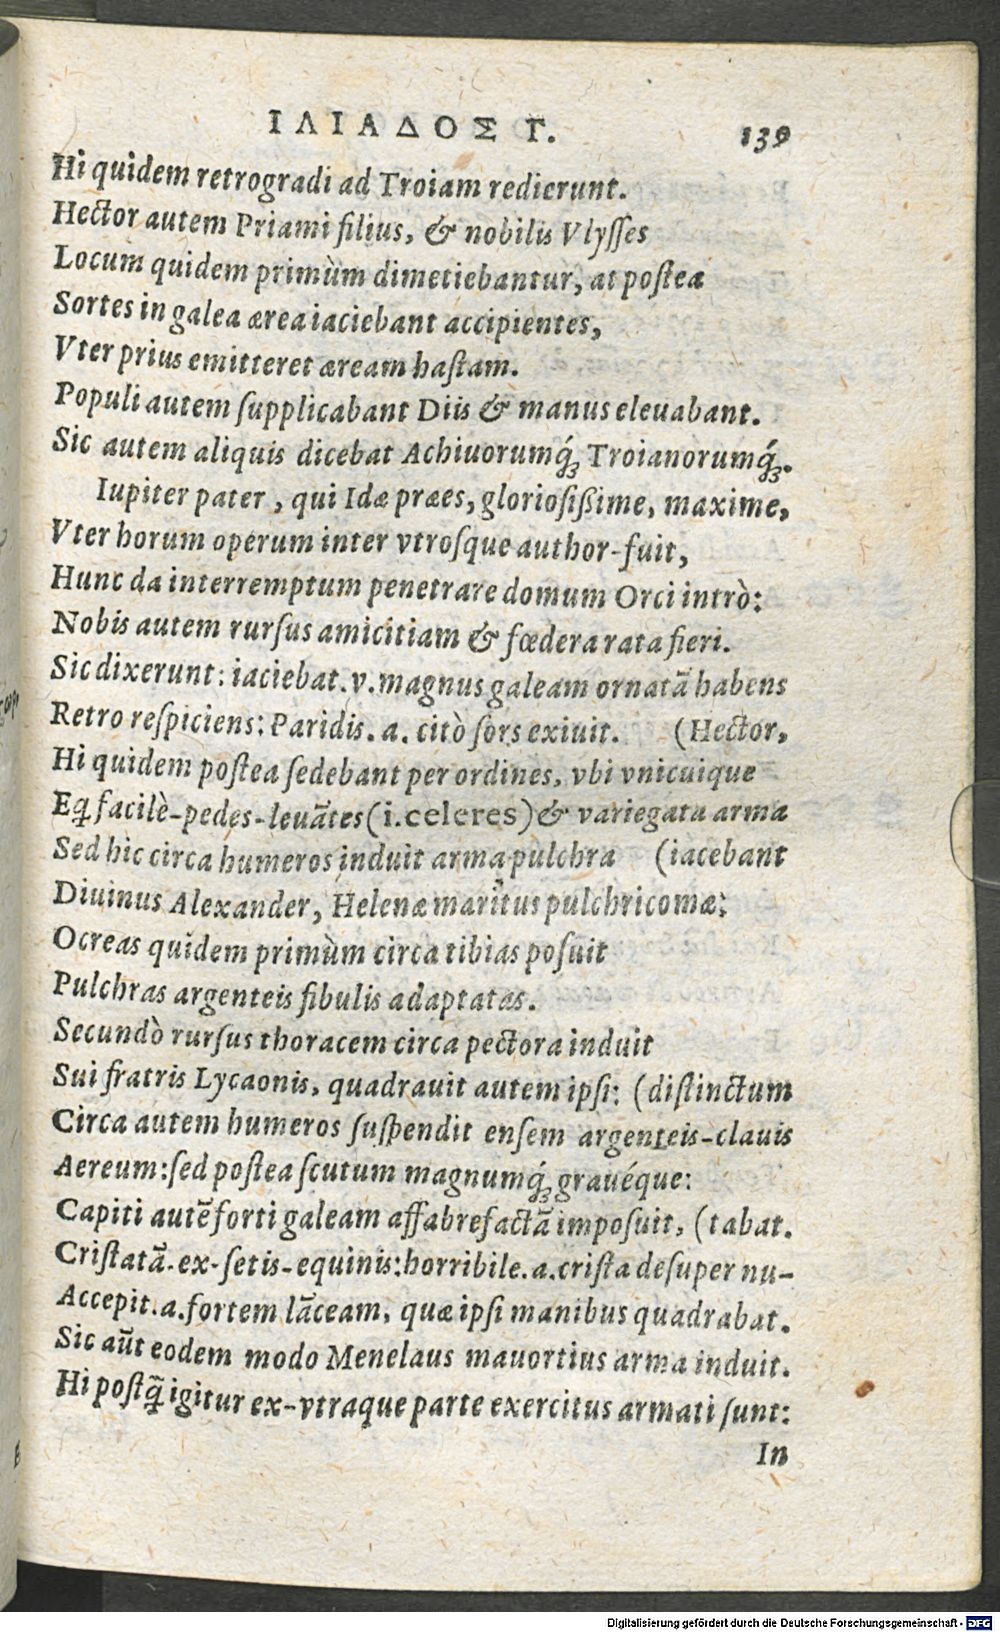 ΙΛΙΑΔΟΣ Γ. 139
Hi quidem retrogradi ad Troiam redierunt.
Hector autem Priami filius, & nobilis Vlyſſes
Locum quidem primùm dimetiebantur, at poſtea
Sortes in galea ærea iaciebant accipientes,
Vter prius emitteret æream haſtam.
Populi autem ſupplicabant Diis & manus eleuabant.
Sic autem aliquis dicebat Achiuorumq́; Troianorumq́;.
Iupiter pater, qui Idæ præes, glorioſiſſime, maxime,
Vter horum operum inter vtroſque author-fuit,
Hunc da interremptum penetrare domum Orci intrò:
Nobis autem rurſus amicitiam & fœdera rata fieri.
Sic dixerunt: iaciebat.v.magnus galeam ornatā habens
Retro reſpiciens: Paridis.a. citò ſors exiuit. (Hector,
Hi quidem poſtea ſedebant per ordines, vbi vnicuique
Eq̃ facilè-pedes-leuātes (i.celeres) & variegata arma
Sed hic circa humeros induit arma pulchra (iacebant
Diuinus Alexander, Helenæ maritus pulchricomæ:
Ocreas quidem primùm circa tibias poſuit
Pulchras argenteis fibulis adaptatas.
Secundò rurſus thoracem circa pectora induit
Sui fratris Lycaonis, quadrauit autem ipſi: (diſtinctum
Circa autem humeros ſuſpendit enſem argenteis-clauis
Aereum: ſed poſtea ſcutum magnumq́; grauéque:
Capiti autē forti galeam affabrefactā impoſuit, (tabat.
Criſtatā.ex-ſetis-equinis: horribile.a.criſta deſuper nu-
Accepit.a.fortem lāceam, quæ ipſi manibus quadrabat.
Sic aūt eodem modo Menelaus mauortius arma induit.
Hi poſtq̃ igitur ex-vtraque parte exercitus armati ſunt:
In
Digitalisierung gefördert durch die Deutsche Forschungsgemeinschaft - DFG